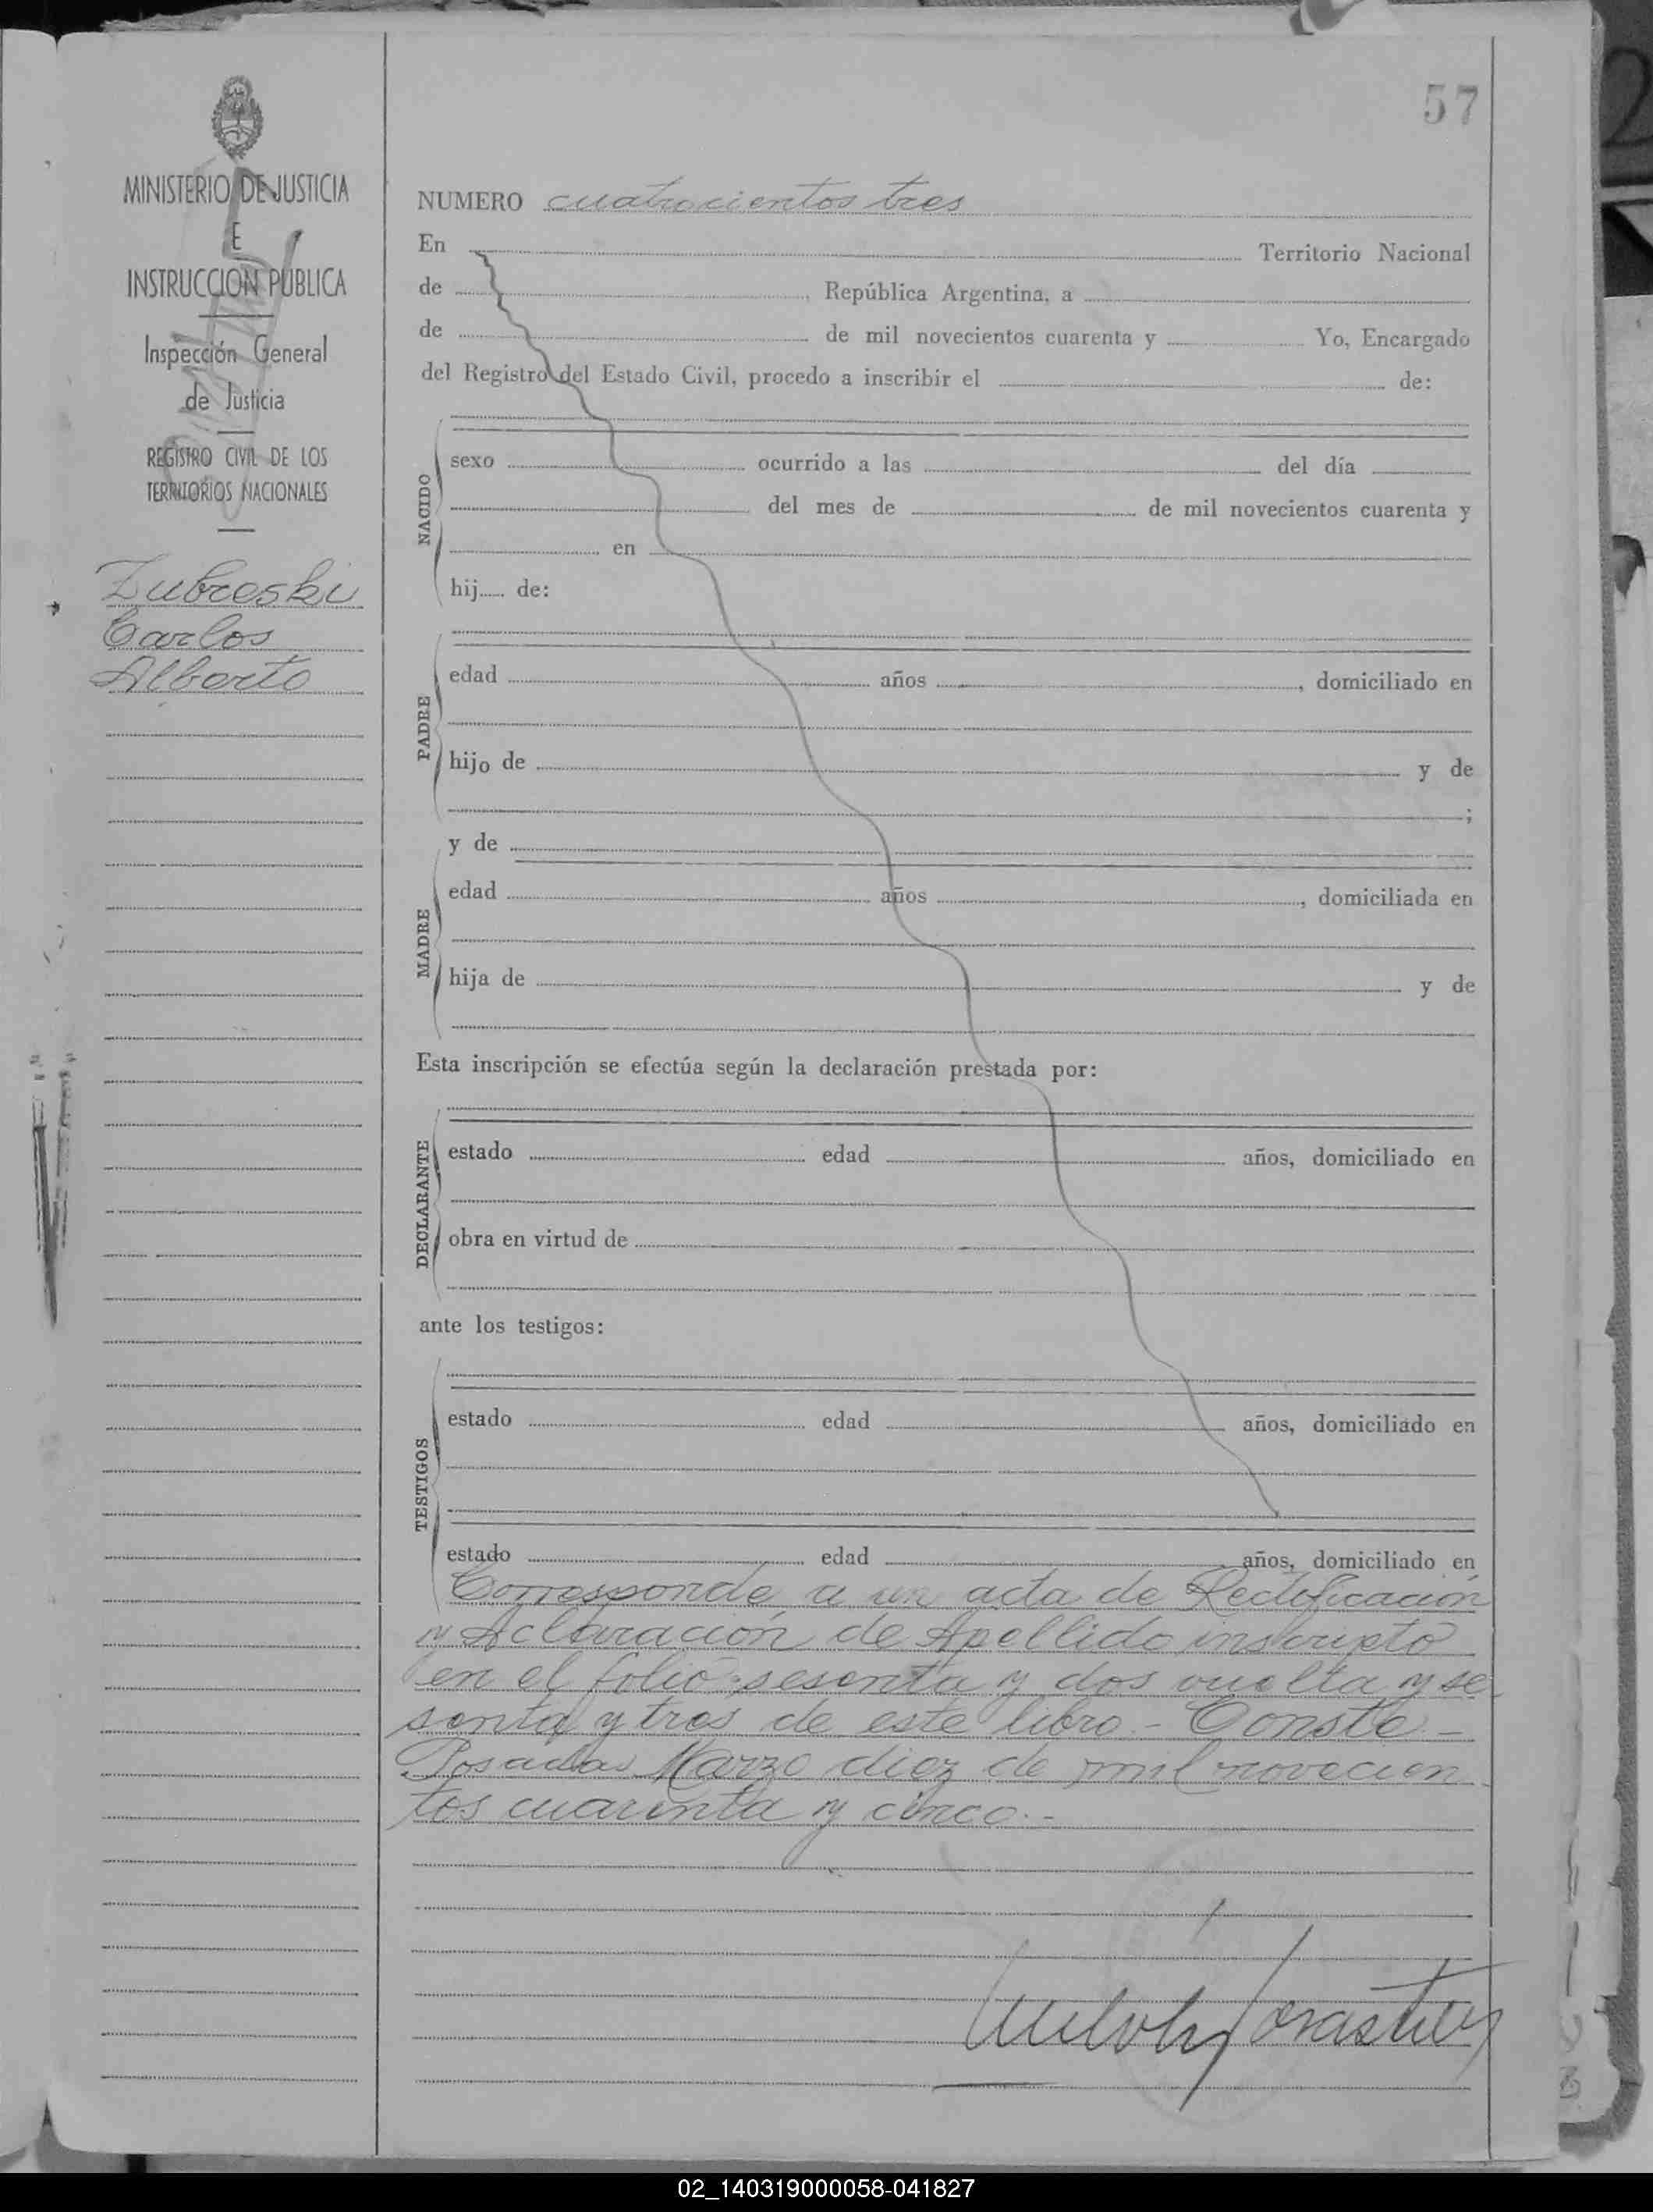 57
MINISTERIO DE JUSTICIA
E
INSTRUCCION PUBLICA
Inspección General
de Justicia
REGISTRO CIVIL DE LOS
TERRITORIOS NACIONALES
Zubreski
Carlos
Alberto
NUMERO cuatrocientos tres
En Territorio Nacional
de , República Argentina, a
de de mil novecientos cuarenta y Yo, Encargado
del Registro del Estado Civil, procedo a inscribir el de:
NACIDO
sexo ocurrido a las del día
del mes de de mil novecientos cuarenta y
en
hij de:
PADRE
edad años , domiciliado en
hijo de y de
;
y de
MADRE
edad años , domiciliada en
hija de y de
Esta inscripción se efectúa según la declaración prestada por:
DECLARANTE
estado edad años, domiciliado en
obra en virtud de
ante los testigos:
TESTIGOS
estado edad años, domiciliado en
estado edad años, domiciliado en
Corresponde a un acta de Rectificación
y Aclaración de Apellido inscripto
en el folio sesenta y dos vuelta y se
senta y tres de este libro.- Conste.-
Posadas Marzo diez de mil novecien
tos cuarenta y cinco.-
02_140319000058-041827